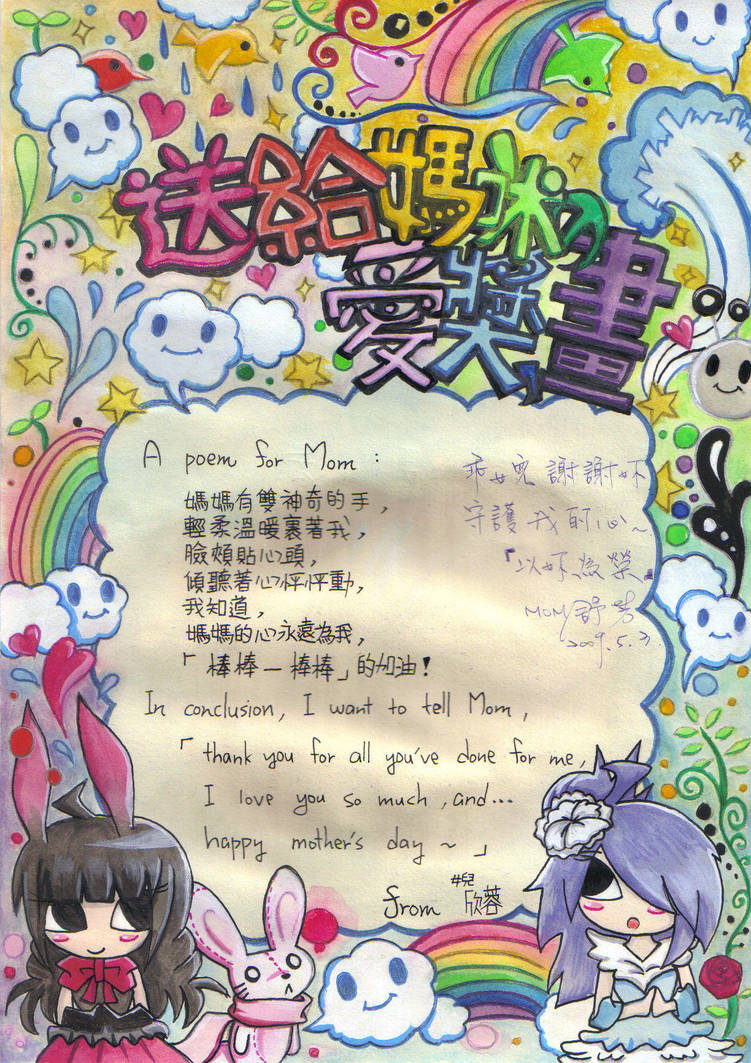 送給媽咪ㄉ
愛獎畫
A poem for Mom :
媽媽有雙神奇的手，
輕柔溫暖裹著我，
臉頰貼心頭，
傾聽著心怦怦動，
我知道，
媽媽的心永遠為我，
「棒棒－棒棒」的加油！
In conclusion, I want to tell Mom,
「thank you for all you've done for me,
I love you so much, and...
happy mother's day ~」
from 女兒 欣蓉
乖女兒 謝謝妳
守護我的心~
『以妳為榮』
MOM 舒
2009.5.